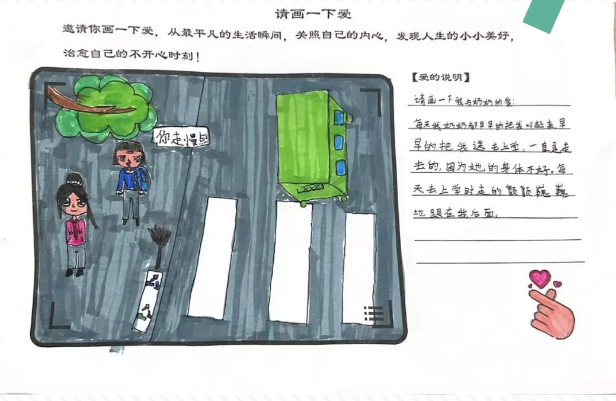 请画一下爱
邀请你画一下爱，从最平凡的生活瞬间，关照自己的内心，发现人生的小小美好，
治愈自己的不开心时刻！
【爱的说明】
你走慢点
请画一下我与奶奶的爱：
每天我奶奶都早早的把我叫起来,早
早的把我送去上学,一直是走
去的,因为她的身体不好,每
天去上学时走的颤颤巍巍
地跟在我后面.